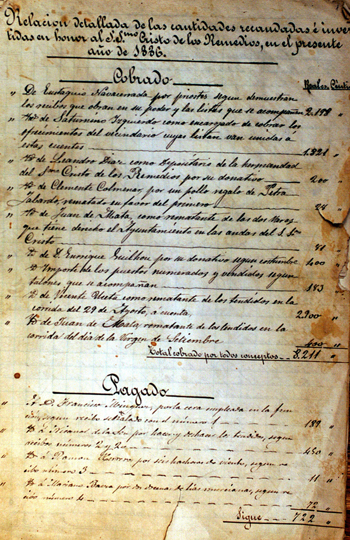 Relacion detallada de las cantidades recaudadas é inver-
tidas en honor al S.Smo Cristo de los Remedios, en el presente
año de 1886.
Cobrado Reales
„ De Eustaquio Navacerrada por priostes segun demuestran
los recibos que obran en su poder y las listas que se acompañan 2.198
„ Yd. de Saturnino Izquierdo como encargado de cobrar los
ofrecimientos del vecindario cuyas listas van unidas á
esta cuenta 1.821
„ Yd. de Leandro Diaz como Depositario de la hermandad
del Smo Cristo de los Remedios por su donativo 200
„ Yd. de Clemente Colmenar por un pollo regalo de Petra
rematado en favor del primero 24
„ Yd. de Juan de Mata, como rematante de los dos
que tiene derecho el Ayuntamiento en las andas del S.S.
Cristo
„ Yd. de D. Enrique Guilhou por su donativo segun costumbre 400
„ Yd. Importe de los puestos numerados y vendidos segun
talones que se acompañan
„ Yd. de Vicente como rematante de los tendidos en la
corrida del 29 de Agosto, á cuenta 2300
„ Yd. de Juan de Mata rematante de los tendidos en la
corrida del dia de la Virgen de Setiembre 400
Total cobrado por todos conceptos 8.211
Pagado
A D. Francisco por la cera empleada en la
segun recibo señalado con el numero 1
por hacer y deshacer los tendidos, segun
recibos numeros 2 y 2
Yd. á Ramon por seis hachas de viento, segun re-
cibo numero 3 11
Yd. á Mariano por dos segun re-
cibo numero 4 72
Sigue 722